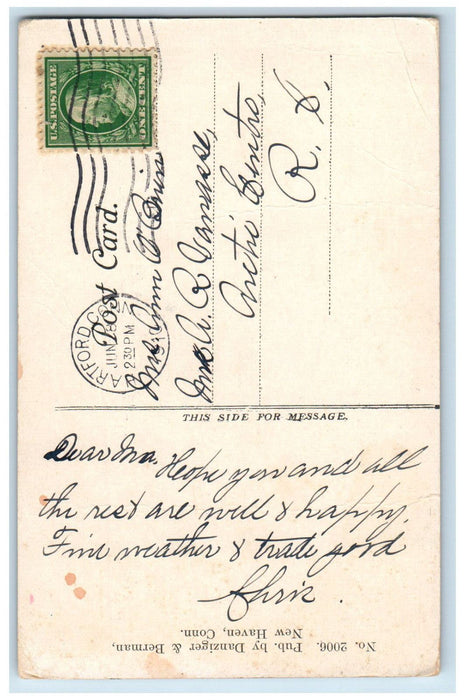 Post Card.
U.S. POSTAGE
ONE CENT
HARTFORD, CONN
JUN 8
2 30 PM
Mrs. Ann
Mrs A. R
Arctic Centre,
R. I.
THIS SIDE FOR MESSAGE.
Dear Ma. Hope you and all
the rest are well & happy.
Fine weather & trade good
Chris.
No. 2006. Pub. by Danziger & Berman,
New Haven, Conn.